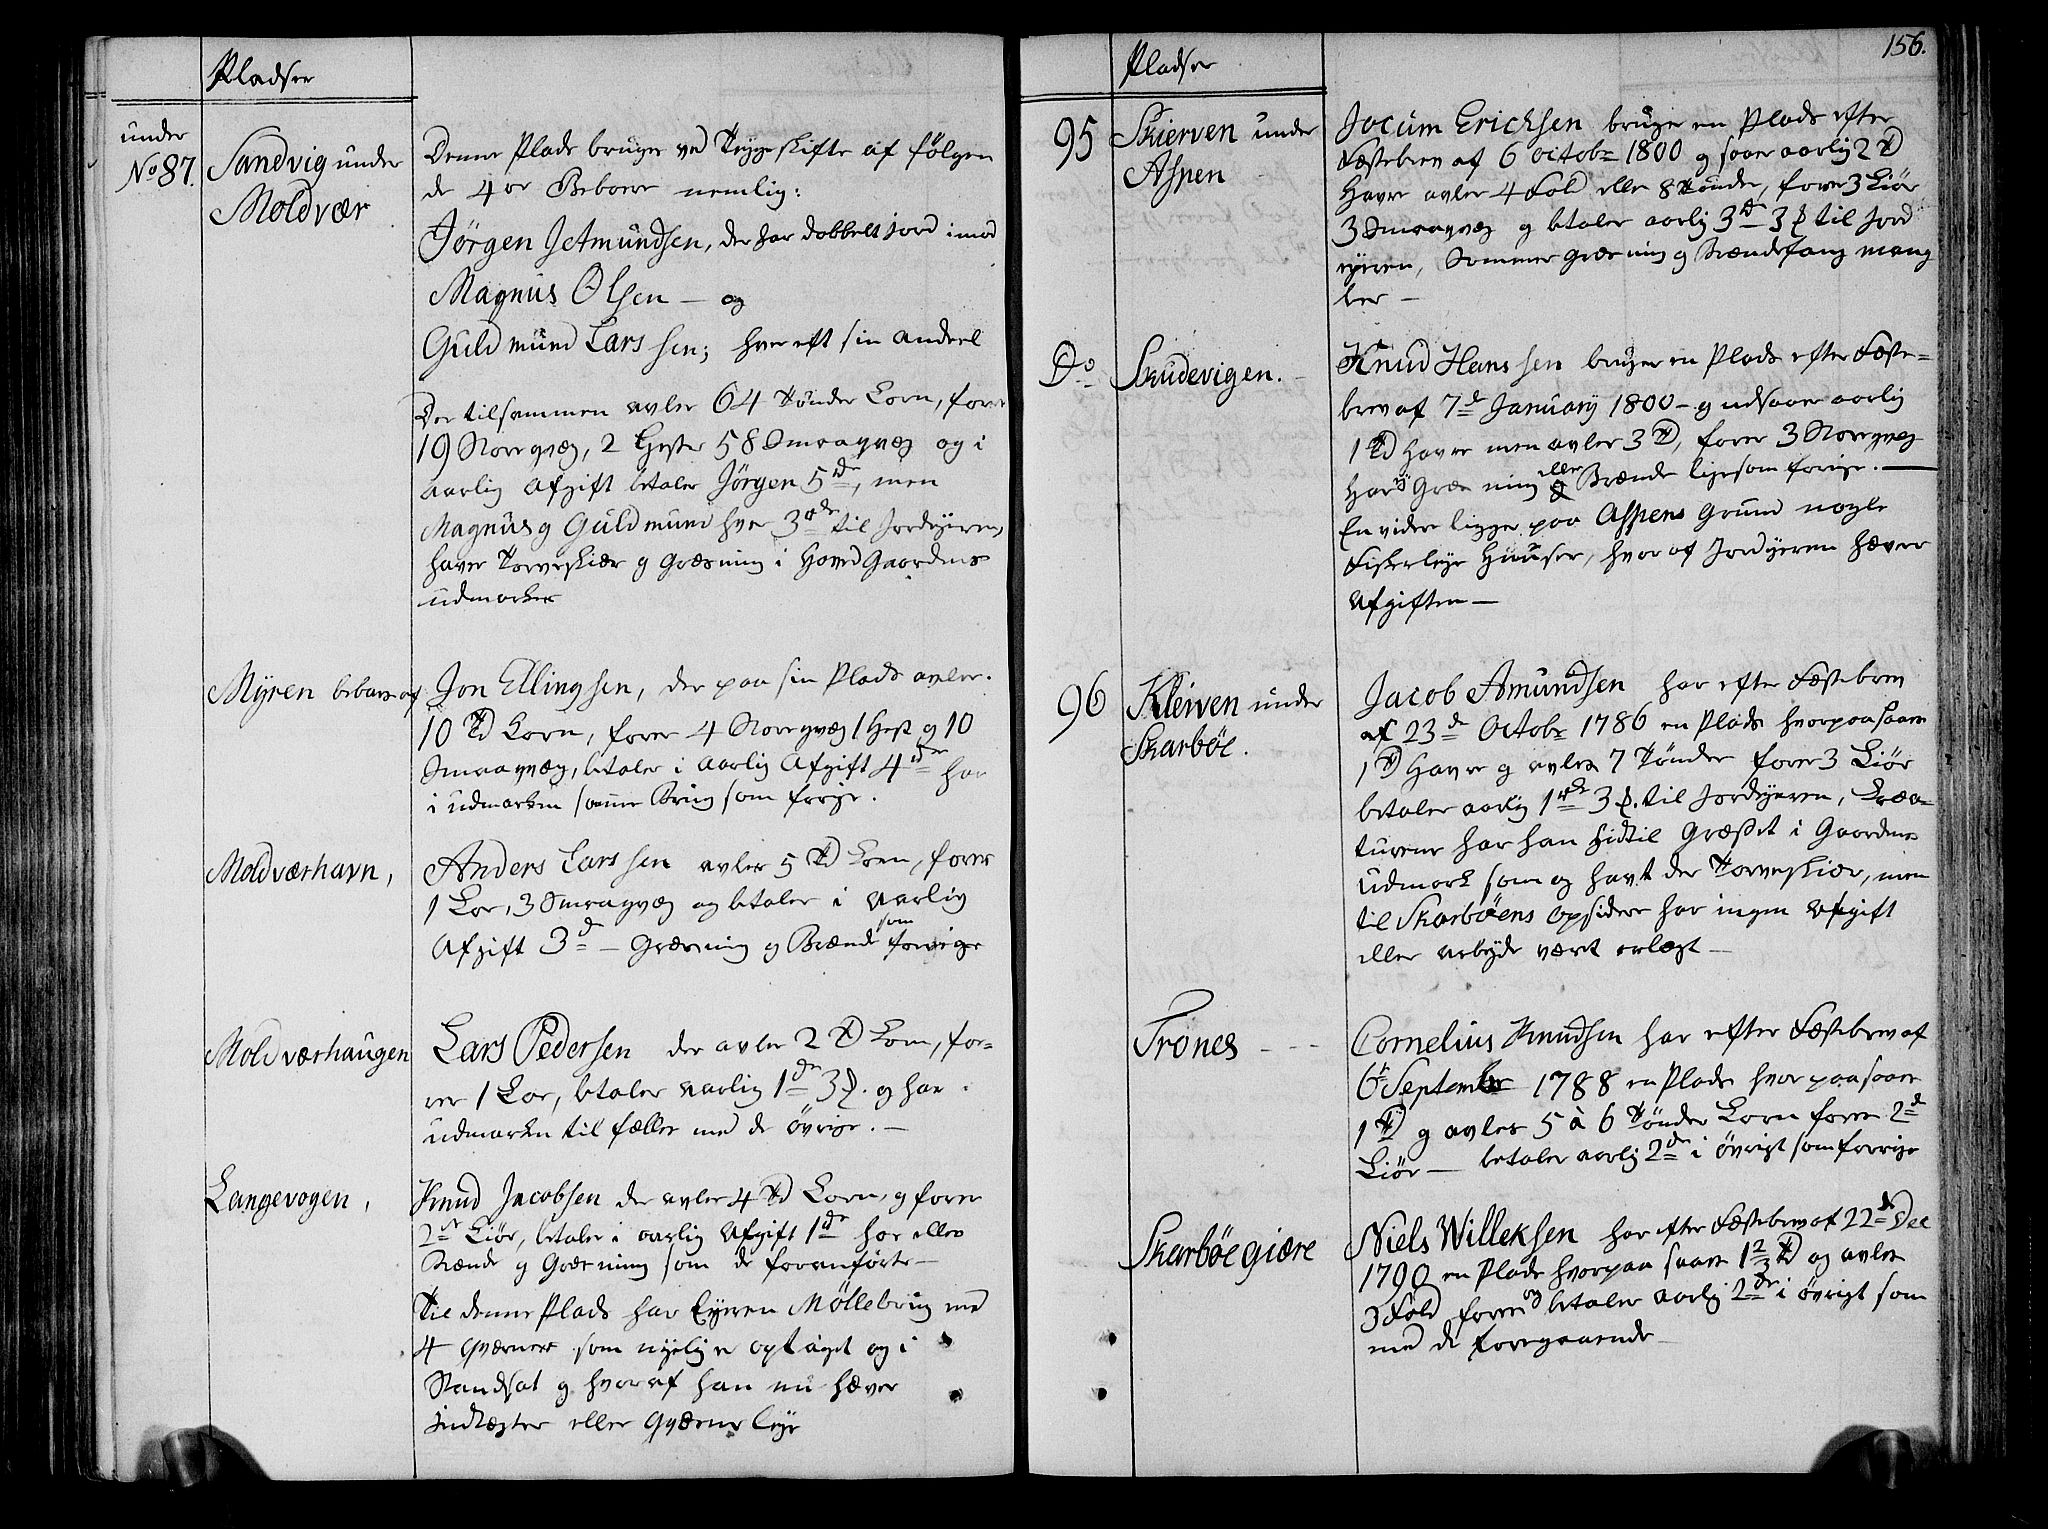 Pladser
under
No 87.
Sandvig under
Moldvær
Denne Plads bruges ved Trygeskifte af følgen
de 4re Beboere nemlig:
Jørgen Jetmundsen, der har dobbelt Jord imod
Magnus Olsen — og
Guldmund Larssen; hver eft sin andeel
Der tilsammen avler 64 Tønder Korn, foder
19 Storeqvæg, 2 Heste 58 Smaaqvæg og i
aarlig Afgift betaler Jørgen 5 rdr, men
Magnus g Guldmund hver 3 rdr til Jordejeren,
haver Torveskiær g Græsning i Hoved Gaardens
udmarker
Myren beboes af
Jon Ellingsen, der paa sin Plads avler
10 Td Korn, foder 4 Storeqvæg 1 Hest g 10
Smaaqvæg, betaler i aarlig Afgift 4 rdr har
i udmarken samme Brug som forige.
Moldværhavn,
Anders Larssen avler 5 Td Korn, foder
1 Koe, 3 Smaaqvæg og betaler i aarlig
Afgift 3 d — Græsning g Brænde som forrige
Moldværhaugen
Lars Pedersen der avler 2 Td Korn, fo-
der 1 Koe, betaler aarlig 1 dr 3 ʒ. g har
udmarken til fælles med de øvrige. —
Langevogen,
Knud Jacobsen der avler 4 Td Korn, g foder
2de Kiør, betaler i aarlig Afgift 1 dr har eller
Brænde g Græsning som de foranførte —
Til denne Plads har Ejeren Møllebrug med
4 Qværner som nyelig er optaget og i
Standsat g hvoraf han nu hæver
Indtægter eller Qværne leye
156.
Pladser
95 Skierven under
Aspen
Jocum Ericksen bruger en Plads efter
Fæstebrev af 6 octobr 1800 g saaer aarlig 2 Td
Havre avler 4 Fold eller 8 Tønder, foder 3 Kiør
3 Smaaqvæg g betaler aarlig 3 dr 3 ʒ til Jord
ejeren, Sommer græsning g Brændefang mang
ler —
Do Skudevigen. —
Knud Hanssen bruger en Plads efter Fæste=
brev af 7d January 1800 — g udsaaer aarlig
1 Td Havre men avler 3 Td, foder 3 Storeqvæg
Har ej Græsning eller Brænde ligesom forige. —
En videre ligger paa Aspens Grund nogle
Fiskerleye Huuser, hvor af Jordejeren hæver
Afgiften —
96 Kleiven under
Skarbøe.
Jacob Amundsen har efter Fæstebrev
af 23de Octobr 1786 en Plads hvorpaa saaes
1 Td Havre g avles 7 Tønder foder 3 Kiør
betaler aarlig 1 rdr 3 ʒ. til Jordejeren, Krea-
turene har han hidtil Græsset i Gaardens
udmark som og havt der Torveskiær, men
til Skarbøens opsidere har ingen Afgift
eller arbejde været erlagt —
Trones - - -
Cornelius Knudsen har efter Fæstebrev af
6t September 1788 en Plads hvorpaa saaes
1 Td g avles 5 à 6 Tønder Korn foder 2de
Kiør — betaler aarlig 2 dr i øvrigt som forrige
Skarbøegiære
Niels Willeksen har efter Fæstebrev af 22de Dec
1790 en Plads hvorpaa saaes 1 2/3 Td og avles
3 Fold foder og betaler aarlig 2 dr i øvrigt som
med de foregaaende —